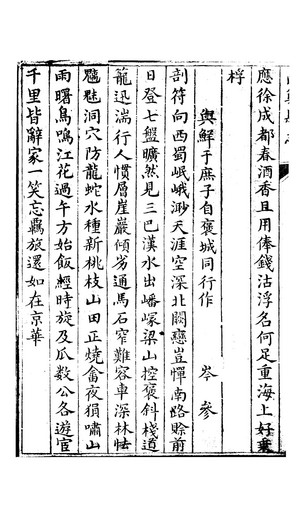 應徐成都春酒香且用俸錢沽浮名何足重海上好乗
桴
與鮮于庶子自褒城同行作
岑參
剖符向西蜀岷峨渺天涯空深北闕戀豈憚南路賒前
日登七盤曠然見三巴漢水出嶓冢梁山控褒斜棧道
籠迅湍行人慣層崖巖傾劣通馬石窄難容車深林怯
魑魅洞穴防龍蛇水種新挿秧山田正燒畬夜猿嘯山
雨曙鳥鳴江花過午方始飯經時旋及瓜數公各遊宦
千里皆辭家一笑忘羈旅還如在京華